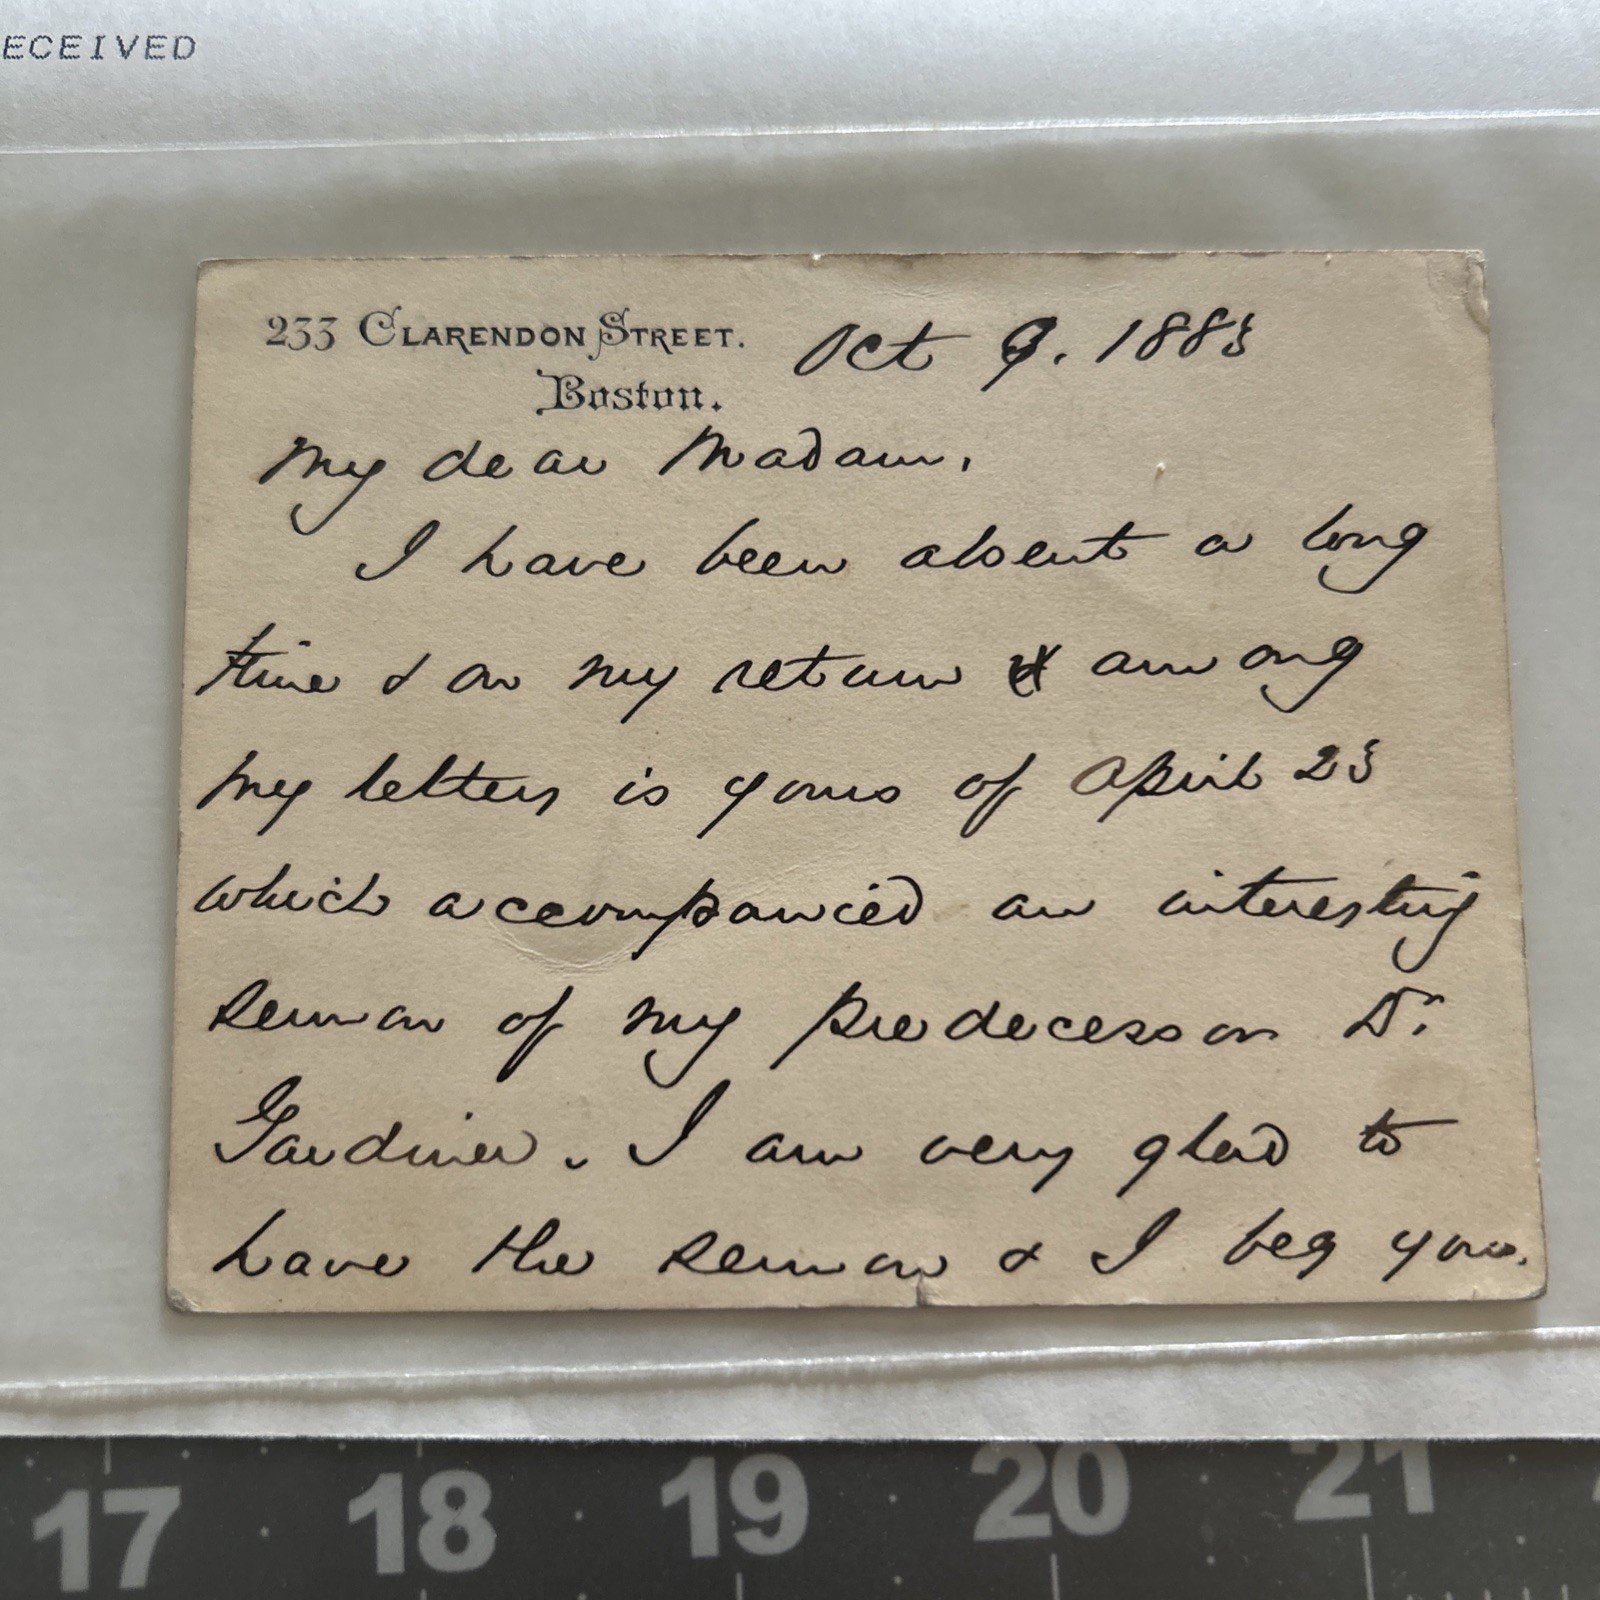 ECEIVED
233 CLARENDON STREET.
Boston.
Oct 9. 1883
My dear Madam,
I have been absent a long
time & on my return among
my letters is yours of April 23
which accompanied an interesting
sermon of my predecessor Dr.
Gardiner. I am very glad to
have the sermon & I beg you
17 18 19 20 21